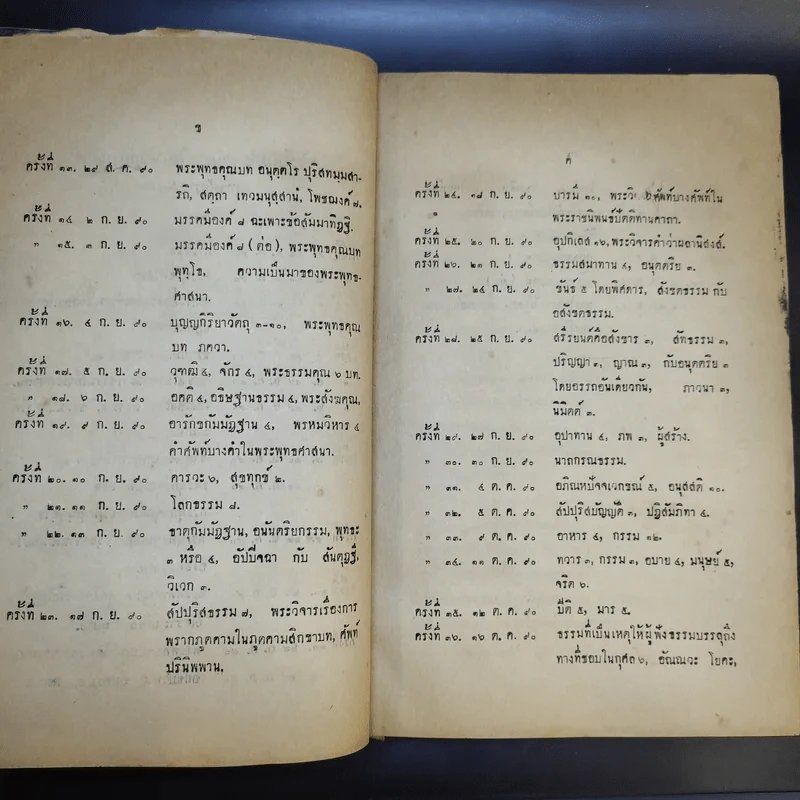 ข
ครั้งที่ ๑๓. ๒๙ ส. ค. ๙๐ พระพุทธคุณบท อนุตฺตโร ปุริสทมฺมสา-
รถิ, สตฺถา เทวมนุสฺสานํ, โพชฌงค์ ๗.
ครั้งที่ ๑๔ ๒ ก. ย. ๙๐ มรรคมีองค์ ๘ ฉะเพาะข้อสัมมาทิฏฐิ.
„ ๑๕. ๓ ก. ย. ๙๐ มรรคมีองค์ ๘ (ต่อ), พระพุทธคุณบท
พุทฺโธ, ความเป็นมาของพระพุทธ-
ศาสนา.
ครั้งที่ ๑๖. ๔ ก. ย. ๙๐ บุญญกิริยาวัตถุ ๓-๑๐, พระพุทธคุณ
บท ภควา.
ครั้งที่ ๑๗. ๕ ก. ย. ๙๐ วุฑฒิ ๔, จักร ๔, พระธรรมคุณ ๖ บท.
„ ๑๘. ๖ ก. ย. ๙๐ อคติ ๔, อธิษฐานธรรม ๔, พระสังฆคุณ,
ครั้งที่ ๑๙. ๙ ก. ย. ๙๐ อารักขกัมมัฏฐาน ๔, พรหมวิหาร ๔
คำศัพท์บางคำในพระพุทธศาสนา.
ครั้งที่ ๒๐. ๑๐ ก. ย. ๙๐ คารวะ ๖, สุขทุกข์ ๒.
„ ๒๑. ๑๑ ก. ย. ๙๐ โลกธรรม ๘.
„ ๒๒. ๑๓ ก. ย. ๙๐ ธาตุกัมมัฏฐาน, อนันตริยกรรม, พุทธะ
๓ หรือ ๔, อัปปิจฉา กับ สันตุฏฐี,
วิเวก ๓.
ครั้งที่ ๒๓. ๑๗ ก. ย. ๙๐ สัปปุริสธรรม ๗, พระวิจารเรื่องการ
พรากภูตคามในภูตคามสิกขาบท, ศัพท์
ปรินิพพาน.
ค
ครั้งที่ ๒๔. ๑๘ ก. ย. ๙๐ บารมี ๑๐, ศัพท์บางศัพท์ใน
พระราชนิพนธ์ปัตติทานคาถา.
ครั้งที่ ๒๕. ๒๐ ก. ย. ๙๐ อุปกิเลส ๑๖, พระวิจารคำว่าผลานิสงส์.
ครั้งที่ ๒๖. ๒๑ ก. ย. ๙๐ ธรรมสมาทาน ๔, อนุตตริย ๓.
„ ๒๗. ๒๔ ก. ย. ๙๐ ขันธ์ ๕ โดยพิศดาร, สังขตธรรม กับ
อสังขตธรรม.
ครั้งที่ ๒๘. ๒๕ ก. ย. ๙๐ สรีรยนต์คือสังขาร ๓, สัทธรรม ๓,
ปริญญา ๓, ญาณ ๓, กับอนุตตริย ๓
โดยอรรถอันเดียวกัน, ภาวนา ๓,
นิมิตต์ ๓.
ครั้งที่ ๒๙. ๒๗ ก. ย. ๙๐ อุปาทาน ๔, ภพ ๓, ผู้สร้าง.
„ ๓๐. ๓๐ ก. ย. ๙๐ นาถกรณธรรม.
„ ๓๑. ๔ ต. ค. ๙๐ อภิณหปัจจเวกขณ์ ๕, อนุสสติ ๑๐.
„ ๓๒. ๕ ต. ค. ๙๐ สัปปุริสบัญญัติ ๓, ปฏิสัมภิทา ๔.
„ ๓๓. ๙ ต. ค. ๙๐ อาหาร ๔, กรรม ๑๒.
„ ๓๔. ๑๑ ต. ค. ๙๐ ทวาร ๓, กรรม ๓, อบาย ๔, มนุษย์ ๕,
จริต ๖.
ครั้งที่ ๓๕. ๑๒ ต. ค. ๙๐ ปีติ ๕, มาร ๕.
ครั้งที่ ๓๖. ๑๖ ต. ค. ๙๐ ธรรมที่เป็นเหตุให้ผู้ฟังธรรมบรรลุถึง
ทางที่ชอบในกุศล ๖, อัณณวะ โยคะ,